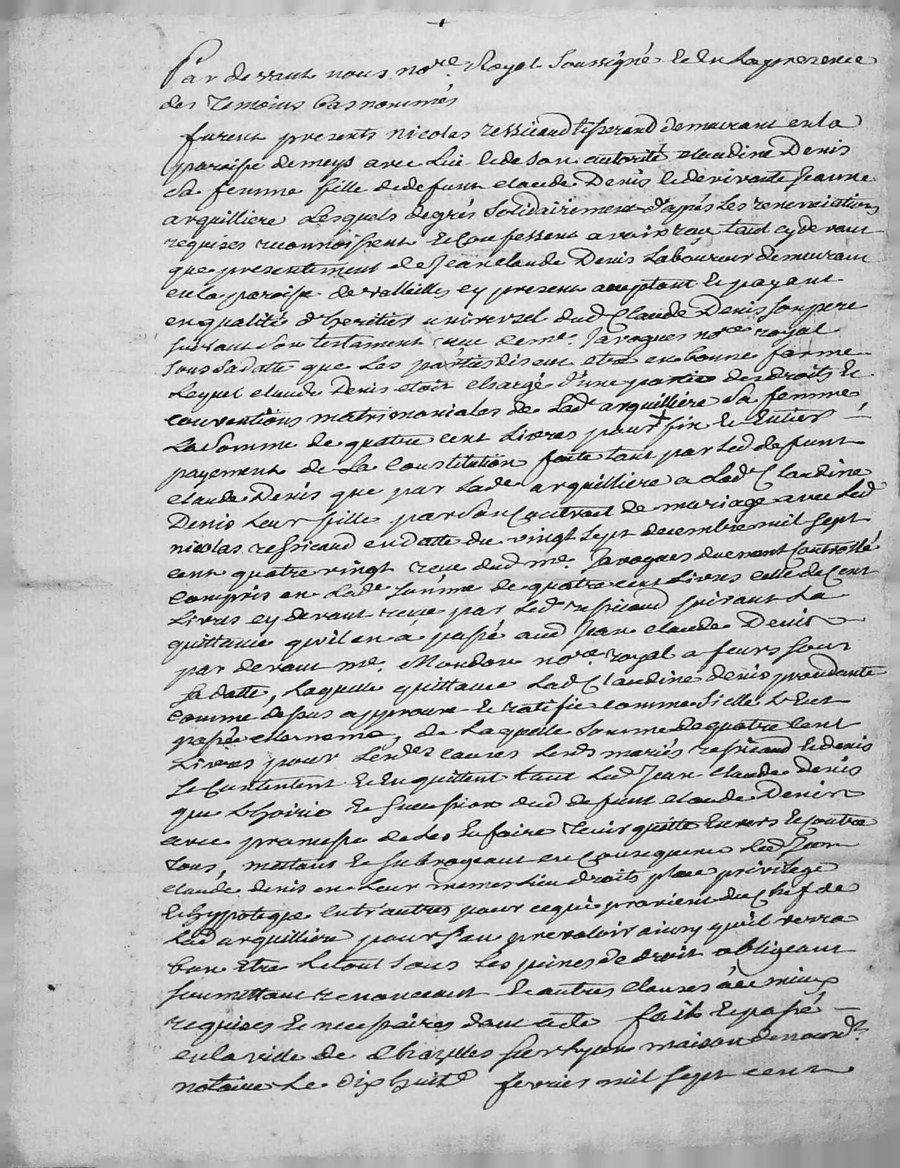 Par devant nous no.re Royal Soussigné et en la presence
des Temoins bas nommés
furent presents nicolas ressicaud tisserand demeurant en la
paroisse de meys avec lui et de son autorité claudine Denis
sa femme fille de defunt claude Denis et de vivante Jeanne
arquilliere Lesquels de grés solidairement d'apés Les renonciations
requises reconnoissent et Confessent avoir reçu tant cy devant
que presentement de Jean claude Denis Laboureur demeurant
en la paroisse de valleilles cy present acceptant et payant
en qualité d'heritier universel dud. Claude Denis son pere
suivant son testament reçu de me. Javogues no.re royal
sous sa datte que Les parties disent etre en bonne forme
Lequel claude Denis etoit chargé d'une partie des droits et
conventions matrimoniales de Lad. arquilliere sa femme
La somme de quatre cent Livres pour fin et Entier
payement de La Constitution faite tant par Led. defunt
claude Denis que par Lade arquilliere a Lad. Claudine
Denis Leur fille par son Contrat de mariage avec Led.
nicolas ressicaud en datte du vingt sept decembre mil sept
cent quatre vingt reçu dud. me. Javogues duement Controllé
Compris en Lade somme de quatre cent Livres celle de Cent
Livres cy devant reçue par Led. ressicaud suivant La
quittance qu'il en à passé aud. Jean claude Denis
par devant me. Mondon no.re royal a feurs sous
sa datte, Laquelle quittance Lad. Claudine denis procedante
comme dessus approuve et ratifie comme si elle L'eut
passée elle meme, de Laquelle somme de quatre Cent
Livres pour Lesdes causes Lesds mariés ressicaud et denis
se Contentent et En quittent tant Led. Jean claude Denis
que L'hoirie et succession dud. defunt claude Denis
avec promesse de Les En faire tenir quitte Envers et contre
Tous, mettant et subrogeant en Consequence Led. Jean
claude denis en Leur meme Lieu droits place privilege
et hypoteque entr'autres pour ce qui provient du Chef de
Lad. arquilliere pour s'en prevaloir ainsy qu'il verra
bon etre Le tout sous Les peines de droit obligeant
soumettant renonceant et autres clauses à ce mieux
requises et necessaires dont acte fait et passé
en la ville de chazelles sur Lyon maison de nous d.
notaire Le dix huit fevrier mil sept cent